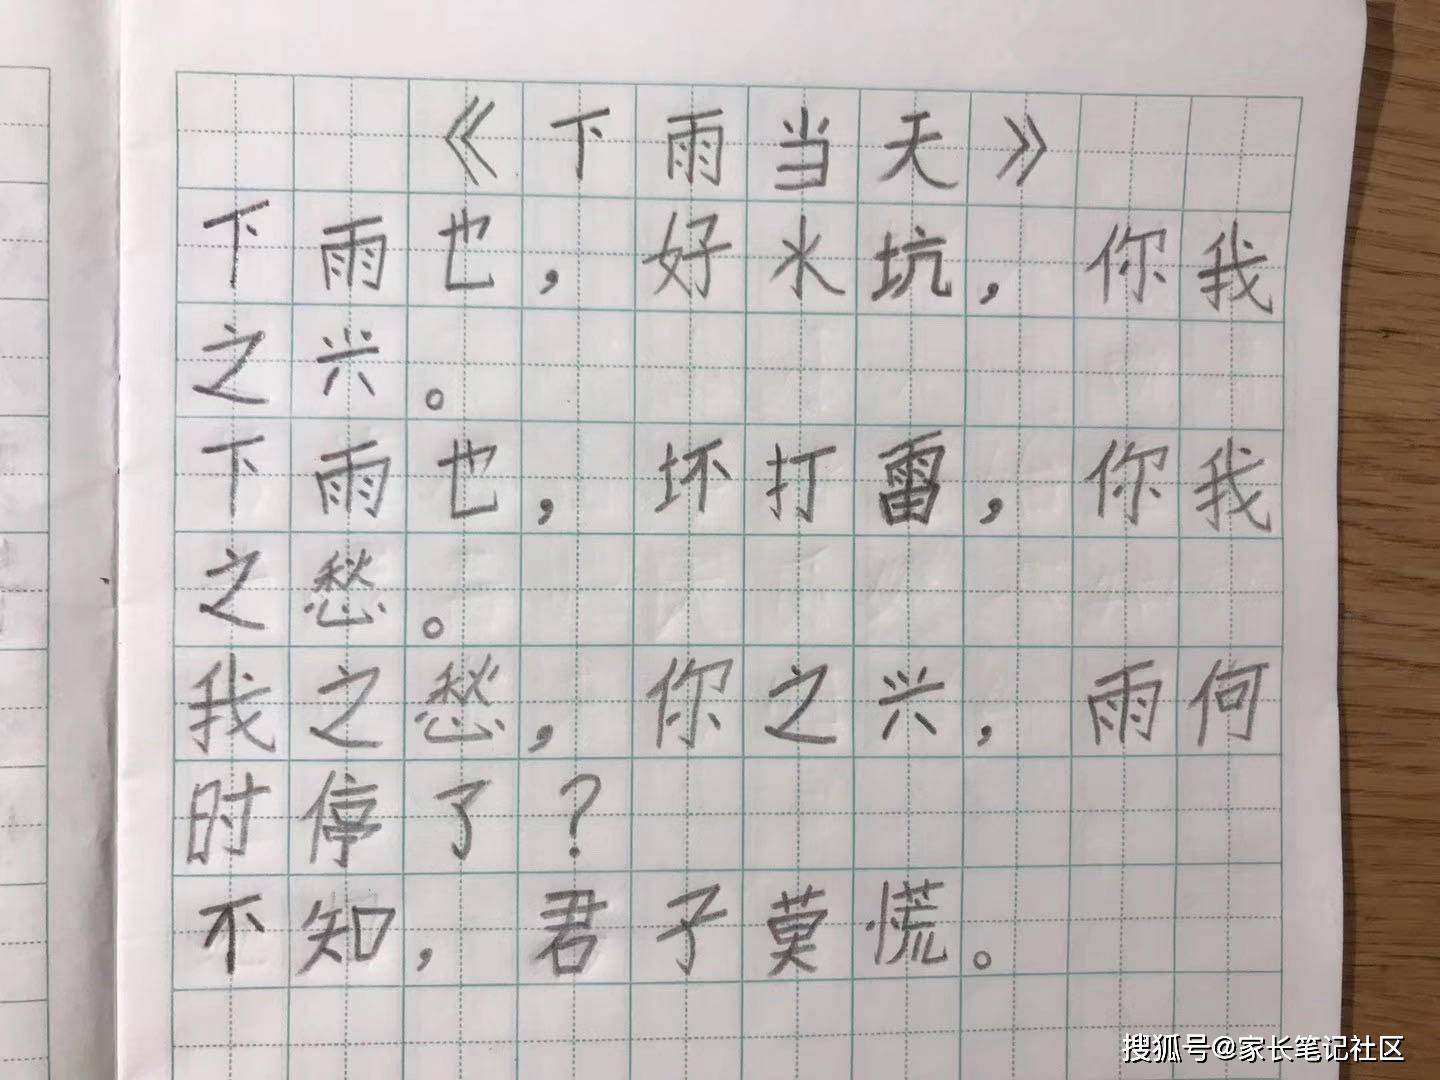 《下雨当天》
下雨也，好水坑，你我
之兴。
下雨也，坏打雷，你我
之愁。
我之愁，你之兴，雨何
时停了？
不知，君子莫慌。
搜狐号@家长笔记社区